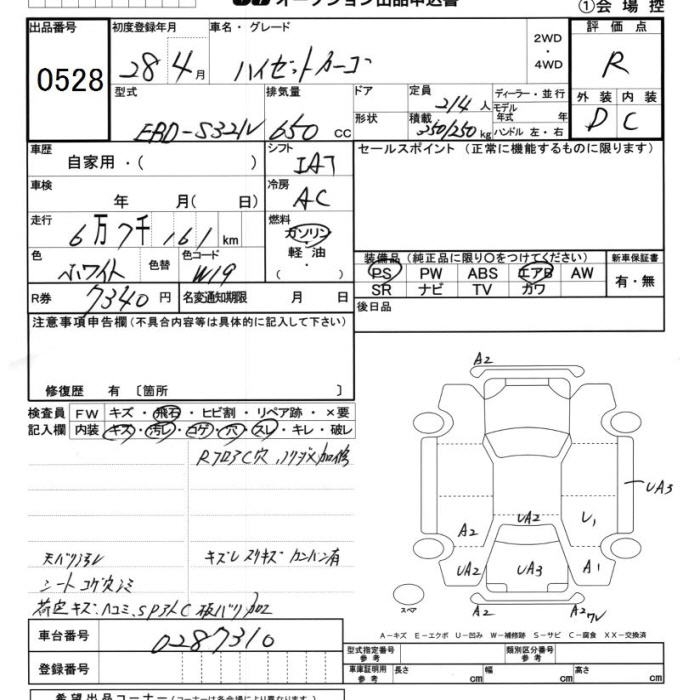 オークション出品申込書
①会場控
出品番号 初度登録年月 車名・グレード 2WD・4WD 評価点
0528 28年4月 ハイゼットカーゴ R
型式 排気量 ドア 定員 ディーラー・並行 外装 内装
EBD-S321V 650cc 形状 2/4人 モデル年式 年 D C
積載 350/250kg ハンドル 左・右
車歴 シフト セールスポイント(正常に機能するものに限ります)
自家用・( ) IAT
車検 冷房
年 月( 日) AC
走行 燃料
6万7千161km ガソリン
色 色替 色コード 軽油
ホワイト W19 ( )
装備品(純正品に限り〇をつけてください) 新車保証書
PS PW ABS エアB AW 有・無
SR ナビ TV カワ
R券 7340円 名変通知期限 月 日
後日品
注意事項申告欄(不具合内容等は具体的に記入して下さい)
修復歴 有 〔箇所 〕
検査員 FW キズ・飛石・ヒビ割・リペア跡・×要
記入欄 内装 キズ・汚レ・コゲ・穴・スレ・キレ・破レ
キズレスリキズ カンバン有
シートコゲ穴シミ
A2
UA3
A2 UA2 U1
UA2 UA3 A1
スペア A2 A2
A-キズ E-エクボ U-凹み W-補修跡 S-サビ C-腐食 XX-交換済
車台番号 0287310
登録番号
型式指定番号 参考 類別区分番号 参考
車庫証明用 参考 長さ cm 幅 cm 高さ cm
希望出品コーナー(コーナーは各会場により異なります)